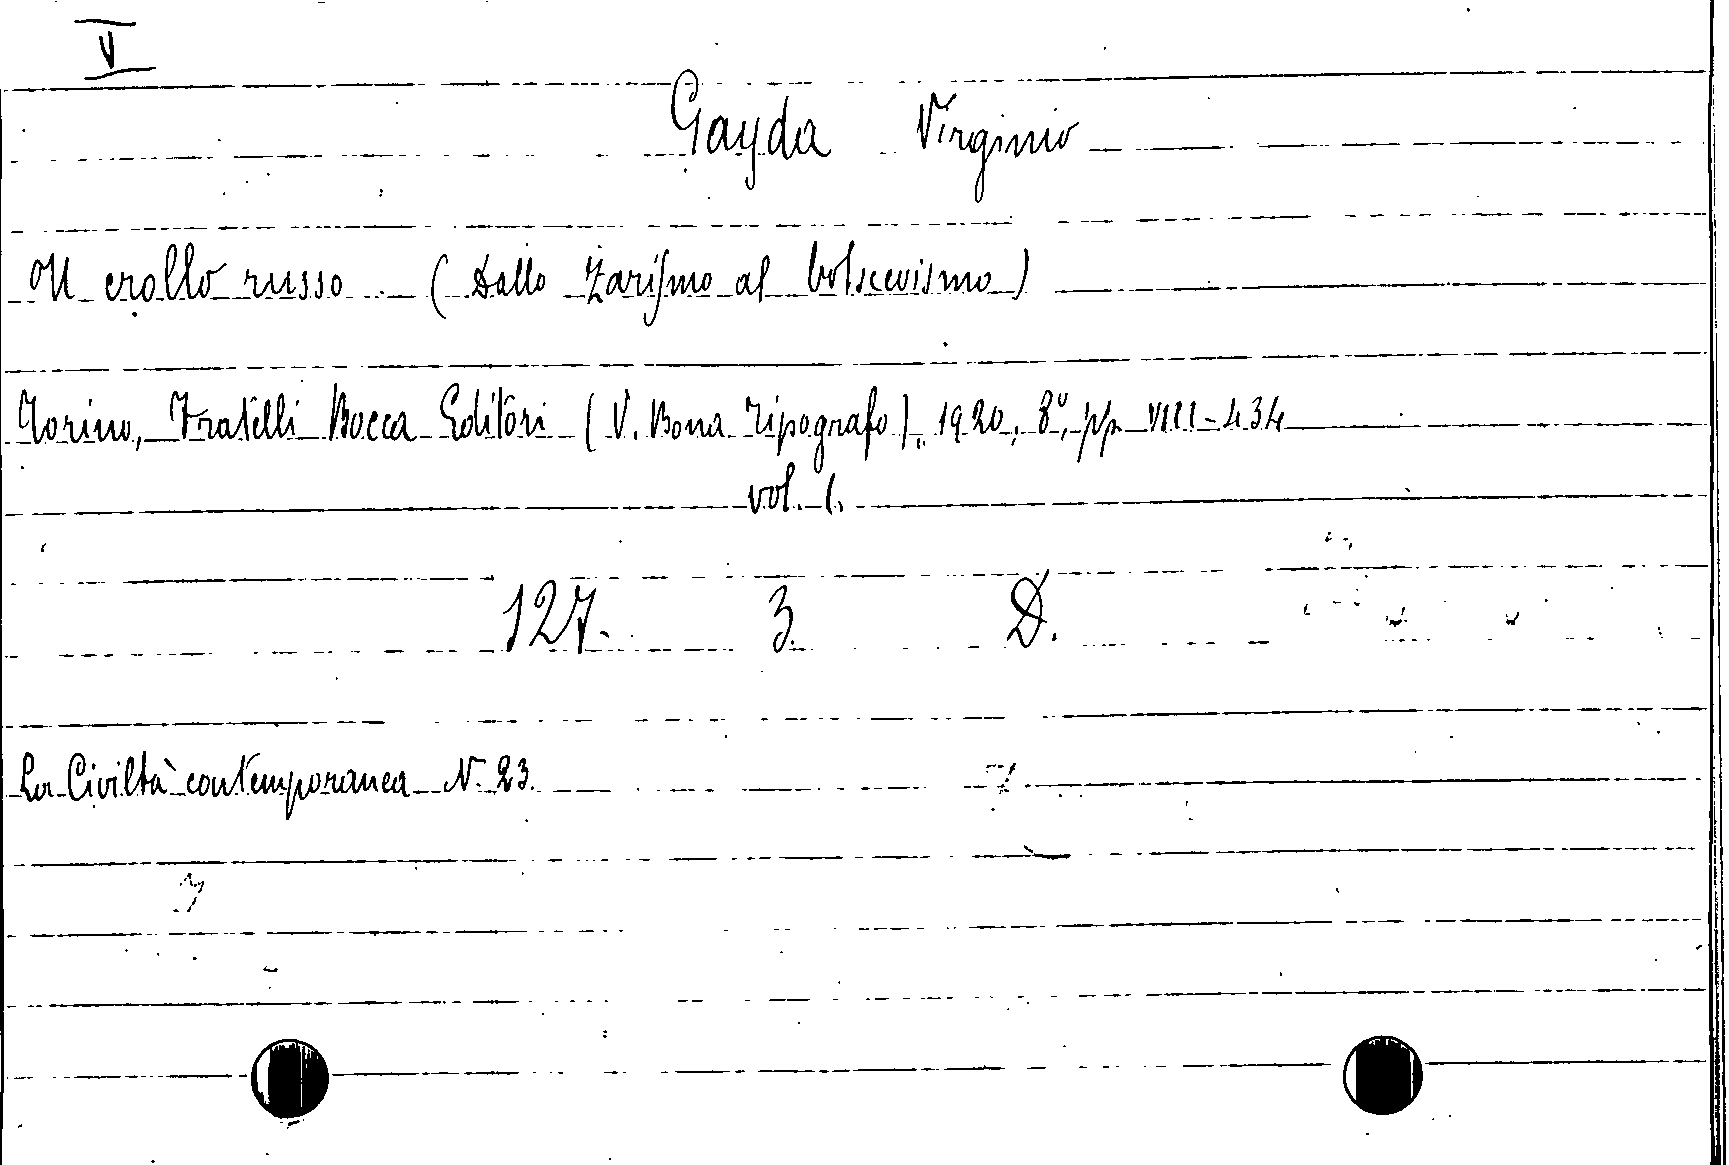 V
Gayda Virginio
Il crollo russo (Dallo Zarismo al bolscevismo)
Torino, Fratelli Bocca Editori (V. Bona Tipografo), 1920, 8º, pp. VIII-434
vol. 1.
127. 3 D.
La Civiltà contemporanea N. 23.